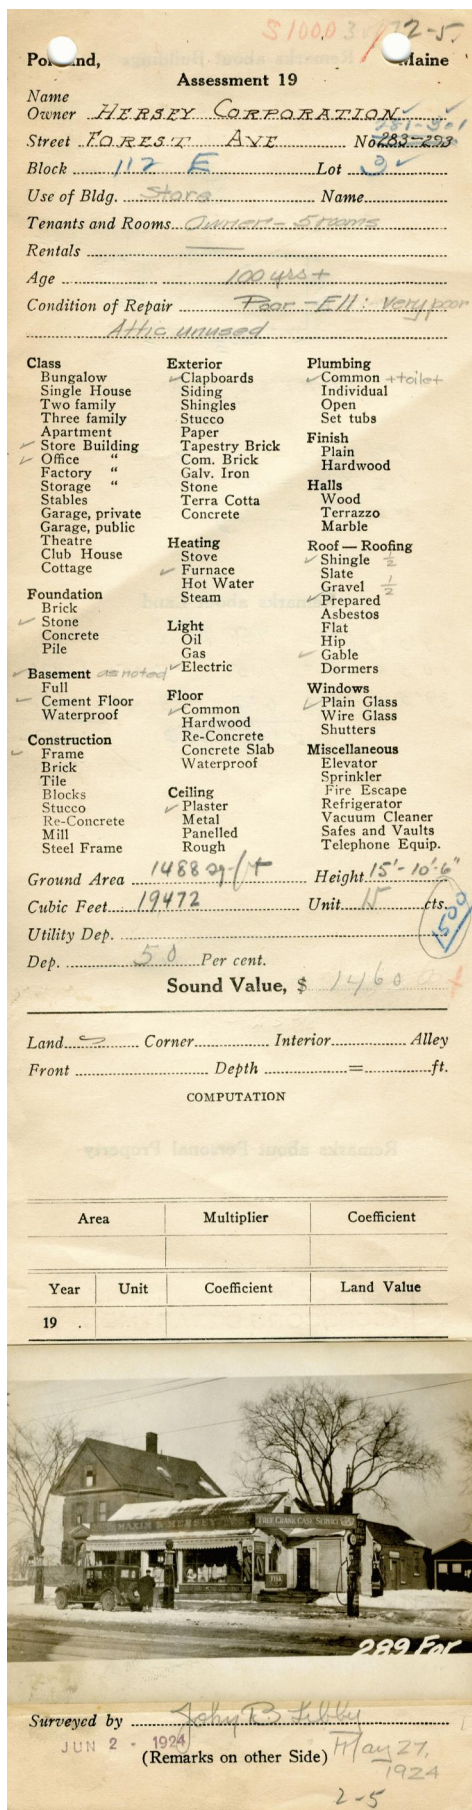 $1000
2-5
Portland, Maine
Assessment 19
Name
Owner HERSEY CORPORATION
281-301
Street FOREST AVE No. 283-293
Block 112 E Lot 3
Use of Bldg. Store Name
Tenants and Rooms Owner - 5 rooms
Rentals
Age 100 yrs +
Condition of Repair Poor - Ell: very poor
Attic unused
Class
Bungalow
Single House
Two family
Three family
Apartment
Store Building
Office "
Factory "
Storage "
Stables
Garage, private
Garage, public
Theatre
Club House
Cottage
Foundation
Brick
Stone
Concrete
Pile
Basement as noted
Full
Cement Floor
Waterproof
Construction
Frame
Brick
Tile
Blocks
Stucco
Re-Concrete
Mill
Steel Frame
Exterior
Clapboards
Siding
Shingles
Stucco
Paper
Tapestry Brick
Com. Brick
Galv. Iron
Stone
Terra Cotta
Concrete
Heating
Stove
Furnace
Hot Water
Steam
Light
Oil
Gas
Electric
Floor
Common
Hardwood
Re-Concrete
Concrete Slab
Waterproof
Ceiling
Plaster
Metal
Panelled
Rough
Plumbing
Common + toilet
Individual
Open
Set tubs
Finish
Plain
Hardwood
Halls
Wood
Terrazzo
Marble
Roof — Roofing
Shingle 1/2
Slate
Gravel 1/2
Prepared
Asbestos
Flat
Hip
Gable
Dormers
Windows
Plain Glass
Wire Glass
Shutters
Miscellaneous
Elevator
Sprinkler
Fire Escape
Refrigerator
Vacuum Cleaner
Safes and Vaults
Telephone Equip.
Ground Area 1488 sq. ft Height 15'-10'-6"
Cubic Feet 19472 Unit 15 cts.
1500
Utility Dep.
Dep. 50 Per cent.
Sound Value, $ 1460
Land Corner Interior Alley
Front Depth = ft.
COMPUTATION
Remarks about Personal Property
Area Multiplier Coefficient
Year Unit Coefficient Land Value
19 .
MAXIM & HERSEY
FREE CRANK CASE SERVICE
289 For
Surveyed by John B Libby
JUN 2 - 1924
(Remarks on other Side) May 27,
1924
2-5